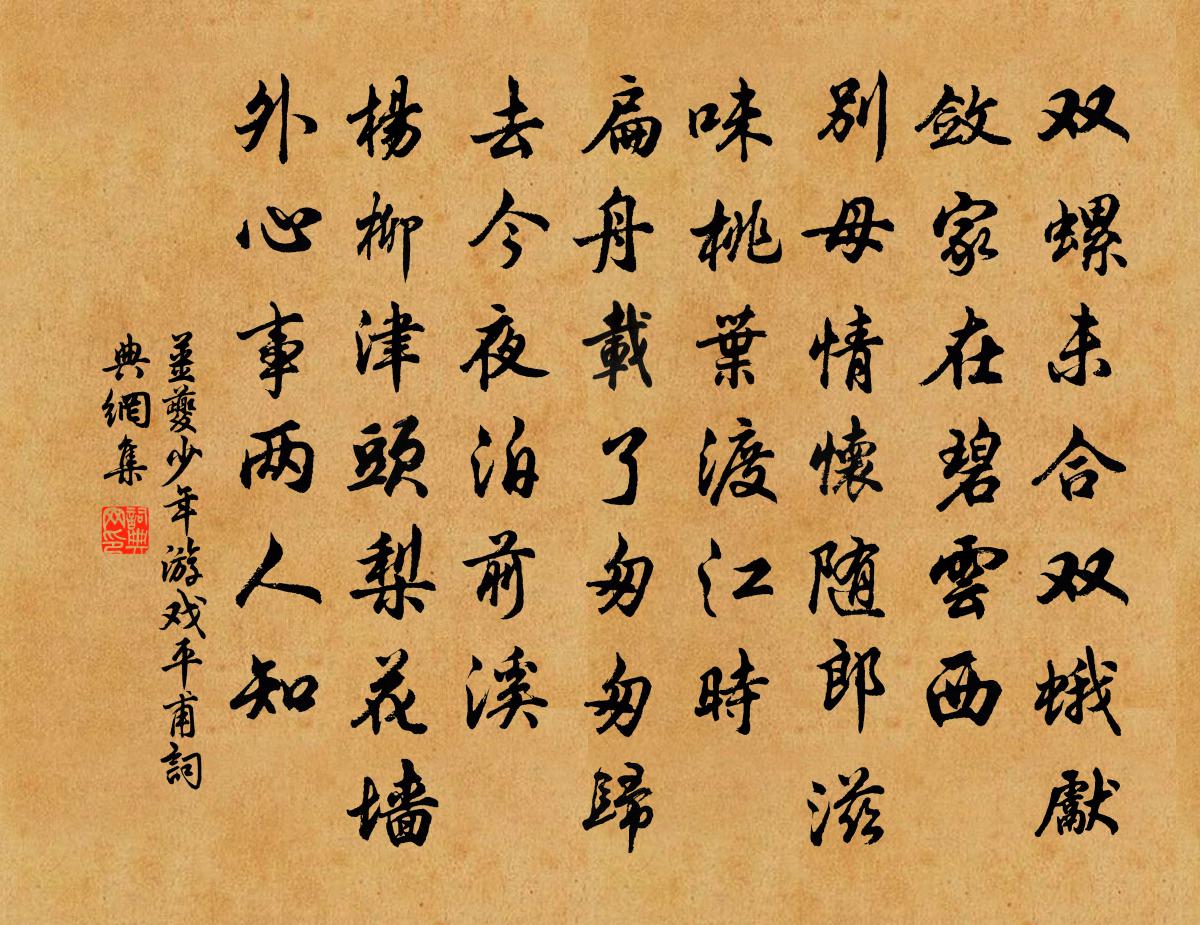 双螺未合双蛾獻
敛家在碧雲西
别母情懷随郎滋
味桃葉渡江時
扁舟載了匆匆歸
去今夜泊前溪
楊柳津頭梨花墙
外心事两人知
薑夔少年游戏平甫詞
典網集
詞典网印